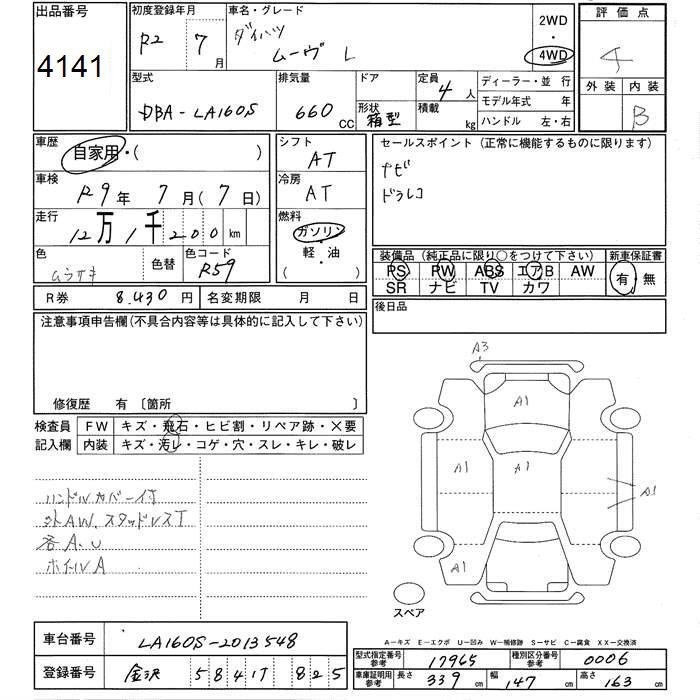 出品番号
4141
初度登録年月
R2 7月
車名・グレード
ダイハツ
ムーヴ L
2WD
・
4WD
評価点
4
外装 内装
B
型式
DBA-LA160S
排気量
660 CC
ドア
形状 箱型
定員 4人
積載 kg
ディーラー・並行
モデル年式 年
ハンドル 左・右
車歴
自家用・( )
車検
R9年 7月(7日)
走行
12万1千200km
色
ムラサキ
色替
色コード
R59
シフト
AT
冷房
AT
燃料
ガソリン
・
軽・油
セールスポイント(正常に機能するものに限ります)
ナビ
ドラレコ
装備品(純正品に限り○をつけて下さい)
PS PW ABS エアB AW
SR ナビ TV カワ
新車保証書
有・無
R券 8,430円
名変期限 月 日
後日品
注意事項申告欄(不具合内容等は具体的に記入して下さい)
修復歴 有〔箇所 〕
検査員
記入欄
FW キズ・飛石・ヒビ割・リペア跡・X要
内装 キズ・汚レ・コゲ・穴・スレ・キレ・破レ
ハンドルカバー付
外AW、スタッドレスT
各A、U
ホイルA
A3
A1
A1
A1
A1
A1
スペア
A-キズ E-エクボ U-凹み W-補修跡 S-サビ C-腐食 XX-交換済
車台番号
LA160S-2013548
登録番号
金沢 584 825
型式指定番号
参考
17965
種別区分番号
参考
0006
車庫証明用
参考
長さ 339cm
幅 147cm
高さ 163cm